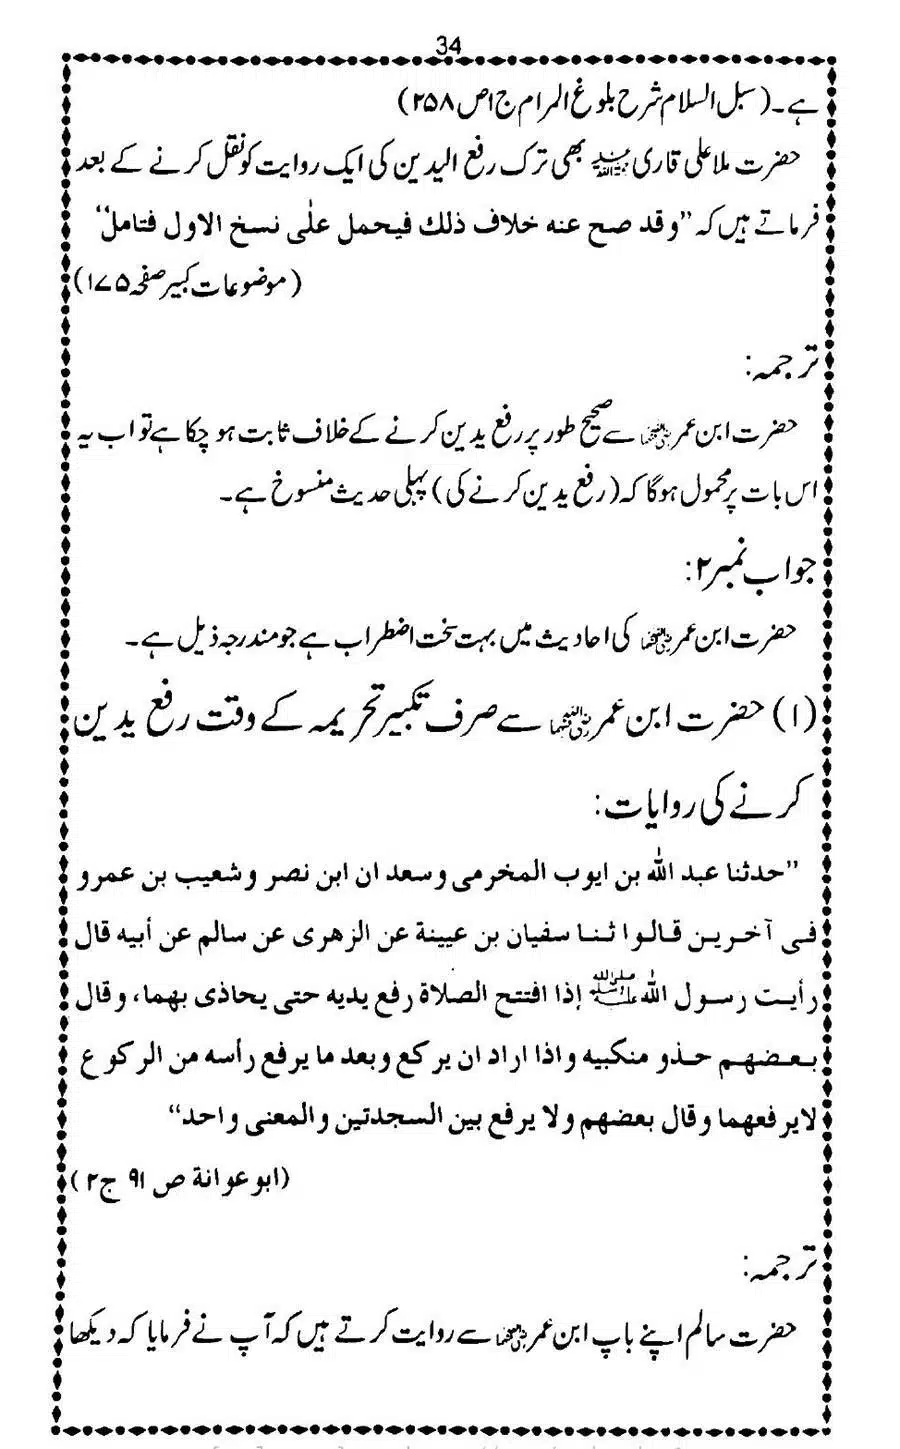 34
ہے۔(سبل السلام شرح بلوغ المرام ج۱ص۲۵۸)
حضرت ملا علی قاری رحمہ اللہ بھی ترک رفع الیدین کی ایک روایت کو نقل کرنے کے بعد
فرماتے ہیں کہ ’’وقد صح عنه خلاف ذلك فيحمل علٰى نسخ الاول فتامل‘‘
(موضوعات کبیر صفحہ ۱۷۵)
ترجمہ:
حضرت ابن عمر رضی اللہ عنہما سے صحیح طور پر رفع یدین کرنے کے خلاف ثابت ہو چکا ہے تو اب یہ
اس بات پر محمول ہوگا کہ (رفع یدین کرنے کی) پہلی حدیث منسوخ ہے۔
جواب نمبر ۲:
حضرت ابن عمر رضی اللہ عنہما کی احادیث میں بہت سخت اضطراب ہے جو مندرجہ ذیل ہے۔
(۱) حضرت ابن عمر رضی اللہ عنہما سے صرف تکبیر تحریمہ کے وقت رفع یدین
کرنے کی روایات:
’’حدثنا عبد اللّٰه بن ايوب المخرمى وسعد ان ابن نصر وشعيب بن عمرو
فى آخرين قالوا ثنا سفيان بن عيينة عن الزهرى عن سالم عن أبيه قال
رأيت رسول اللّٰه ﷺ إذا افتتح الصلاة رفع يديه حتى يحاذى بهما، وقال
بعضهم حذو منكبيه واذا اراد ان يركع وبعد ما يرفع رأسه من الركوع
لايرفعهما وقال بعضهم ولا يرفع بين السجدتين والمعنى واحد‘‘
(ابو عوانة ص ۹۱ ج۲)
ترجمہ:
حضرت سالم اپنے باپ ابن عمر رضی اللہ عنہما سے روایت کرتے ہیں کہ آپ نے فرمایا کہ دیکھا